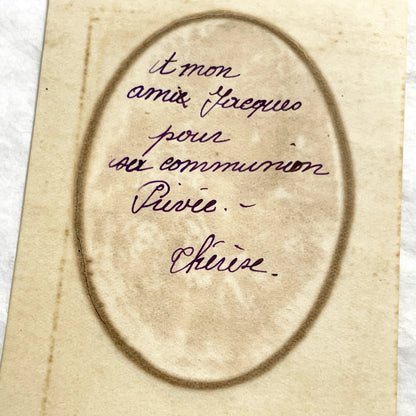 A mon
amie Jacques
pour
sa communion
Privée. -
Thérèse.